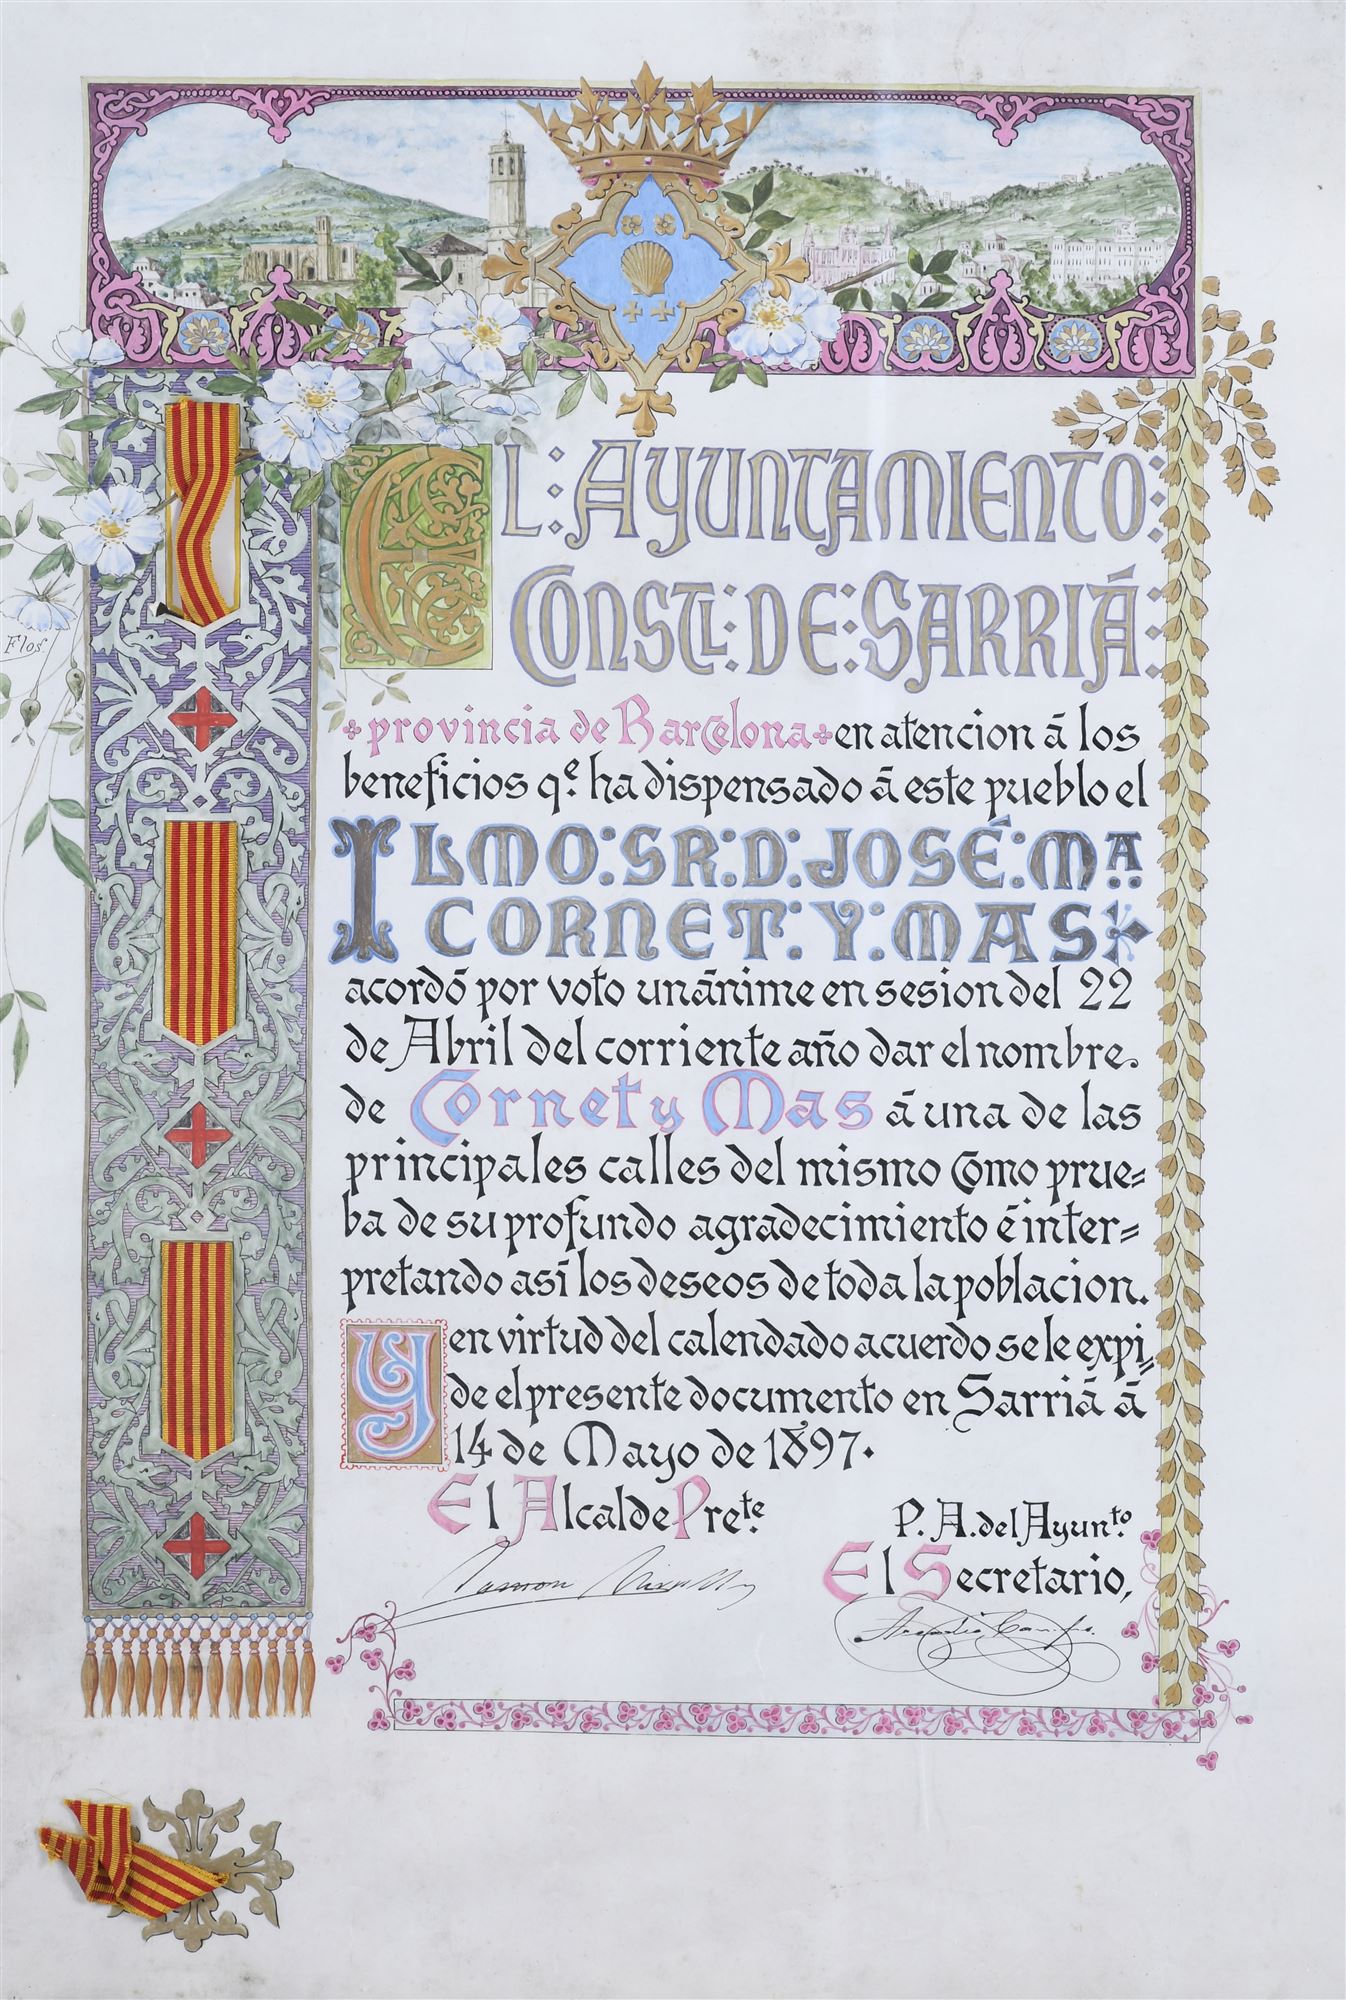 EL: AYUNTAMIENTO:
CONSTL: DE: SARRIÁ:
provincia de Barcelona en atencion á los
beneficios qe. ha dispensado á este pueblo el
ILMO: SR: D: JOSÉ: MA
CORNET: Y: MAS
acordó por voto unánime en sesion del 22
de Abril del corriente año dar el nombre
de Cornet y Mas á una de las
principales calles del mismo como prue=
ba de su profundo agradecimiento é inter=
pretando asi los deseos de toda la poblacion.
Y en virtud del calendado acuerdo se le expi=
de el presente documento en Sarriá á
14 de Mayo de 1897.
El Alcalde Prete.
P. A. del Ayunto.
El Secretario,
Ramon
Flos